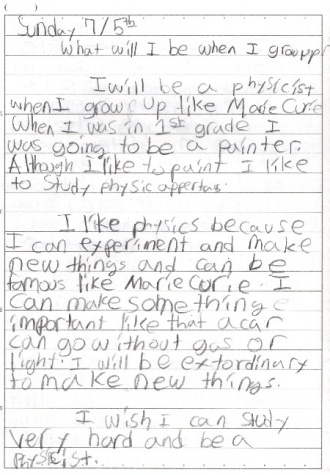 ( )
Sunday 7/5th
What will I be when I growpp
I will be a physicist
when I grow up like Marie Curie
When I was in 1st grade I
was going to be a painter.
Although I like to paint I like
to Study physic
I like physics because
I can experiment and make
new things and can be
famous like Marie Curie. I
can make something
important like that a car
can go without gas or
light. I will be extordinary
to make new things.
I wish I can study
very hard and be a